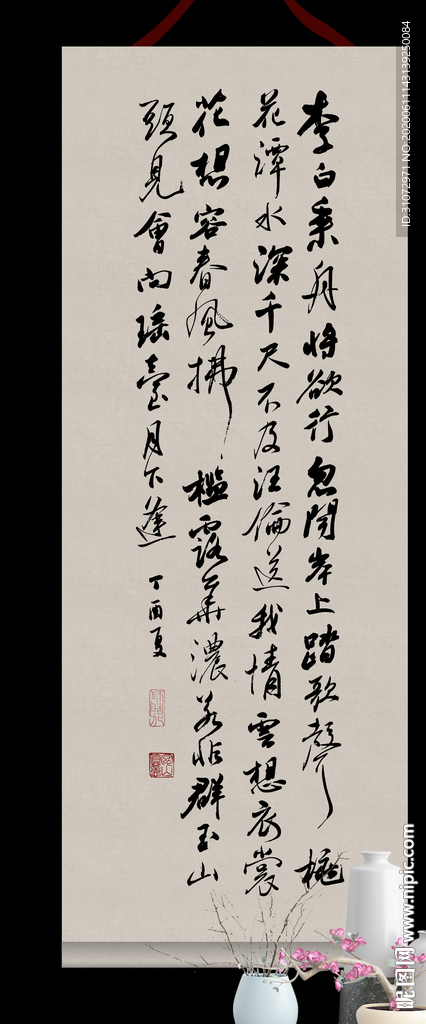 李白乘舟将欲行忽聞岸上踏歌聲桃
花潭水深千尺不及汪倫送我情雲想衣裳
花想容春風拂檻露華濃若非群玉山
頭見會向瑶臺月下逢
丁酉夏
ID:31072971 NO:20200611143139250084
昵图网 www.nipic.com